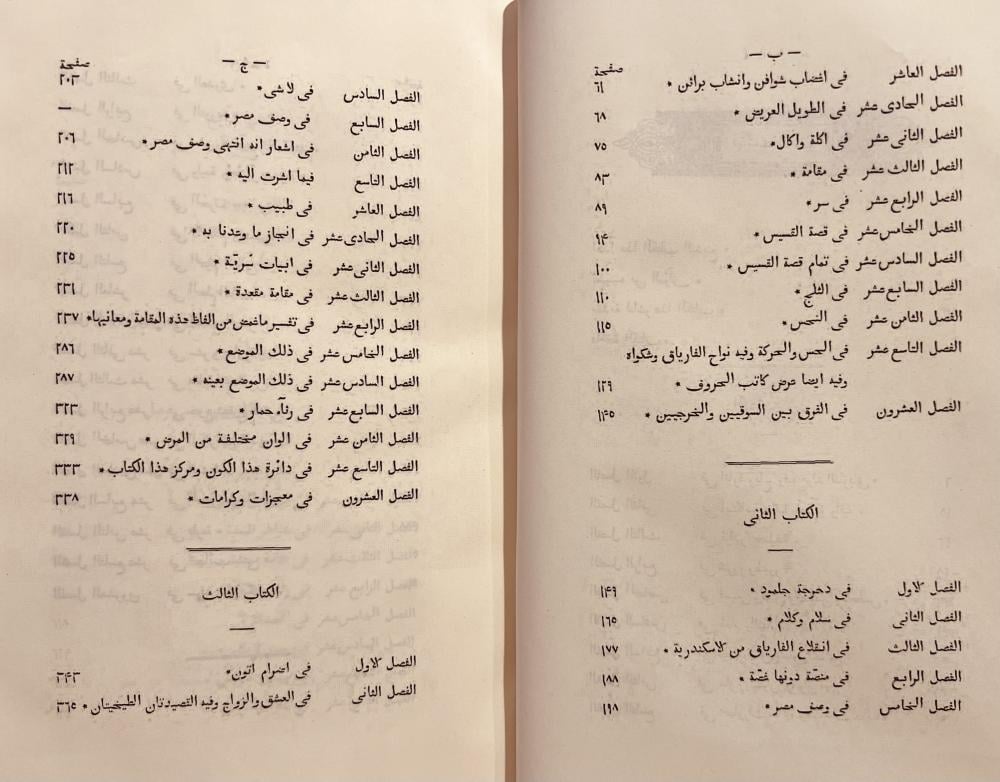 — ب —
صفحة
الفصل العاشر فى اغضاب شوافن وانشاب براثن * ٦١
الفصل الحادى عشر فى الطويل العريض * ٦٨
الفصل الثانى عشر فى اكلة واكال * ٧٥
الفصل الثالث عشر فى مقامة * ٨٣
الفصل الرابع عشر فى سر * ٨٩
الفصل الخامس عشر فى قصة القسيس * ٩٤
الفصل السادس عشر فى تمام قصة القسيس * ١٠٠
الفصل السابع عشر فى الثلج * ١١٠
الفصل الثامن عشر فى النحس * ١١٥
الفصل التاسع عشر فى الحس والحركة وفيه نواح الفارياق وشكواه
وفيه ايضا عرض كاتب الحروف * ١٢٩
الفصل العشرون فى الفرق بين السوقيين والخرجيين * ١٤٥
الكتاب الثانى
—
الفصل الاول فى دحرجة جلمود * ١٤٩
الفصل الثانى فى سلام وكلام * ١٦٥
الفصل الثالث فى انقلاع الفارياق من الاسكندرية * ١٧٧
الفصل الرابع فى منصّة دونها غصّة * ١٨٨
الفصل الخامس فى وصف مصر * ١٩٨
— ج —
صفحة
الفصل السادس فى لا شى * ٢٠٣
الفصل السابع فى وصف مصر * —
الفصل الثامن فى اشعار انه انتهى وصف مصر * ٢٠٦
الفصل التاسع فيما اشرت اليه * ٢١٢
الفصل العاشر فى طبيب * ٢١٦
الفصل الحادى عشر فى انجاز ما وعدنا به * ٢٢٠
الفصل الثانى عشر فى ابيات سُريّة * ٢٢٥
الفصل الثالث عشر فى مقامة مقعدة * ٢٣١
الفصل الرابع عشر فى تفسير ما غمض من الفاظ هذه المقامة ومعانيها * ٢٣٧
الفصل الخامس عشر فى ذلك الموضع * ٢٨٦
الفصل السادس عشر فى ذلك الموضع بعينه * ٢٨٧
الفصل السابع عشر فى رثآء حمار * ٣٢٣
الفصل الثامن عشر فى الوان مختلفة من المرض * ٣٢٩
الفصل التاسع عشر فى دائرة هذا الكون ومركز هذا الكتاب * ٣٣٣
الفصل العشرون فى معجزات وكرامات * ٣٣٨
الكتاب الثالث
—
الفصل الاول فى اضرام اتون * ٣٤٣
الفصل الثانى فى العشق والزواج وفيه القصيدتان الطيخيتان * ٣٦٥